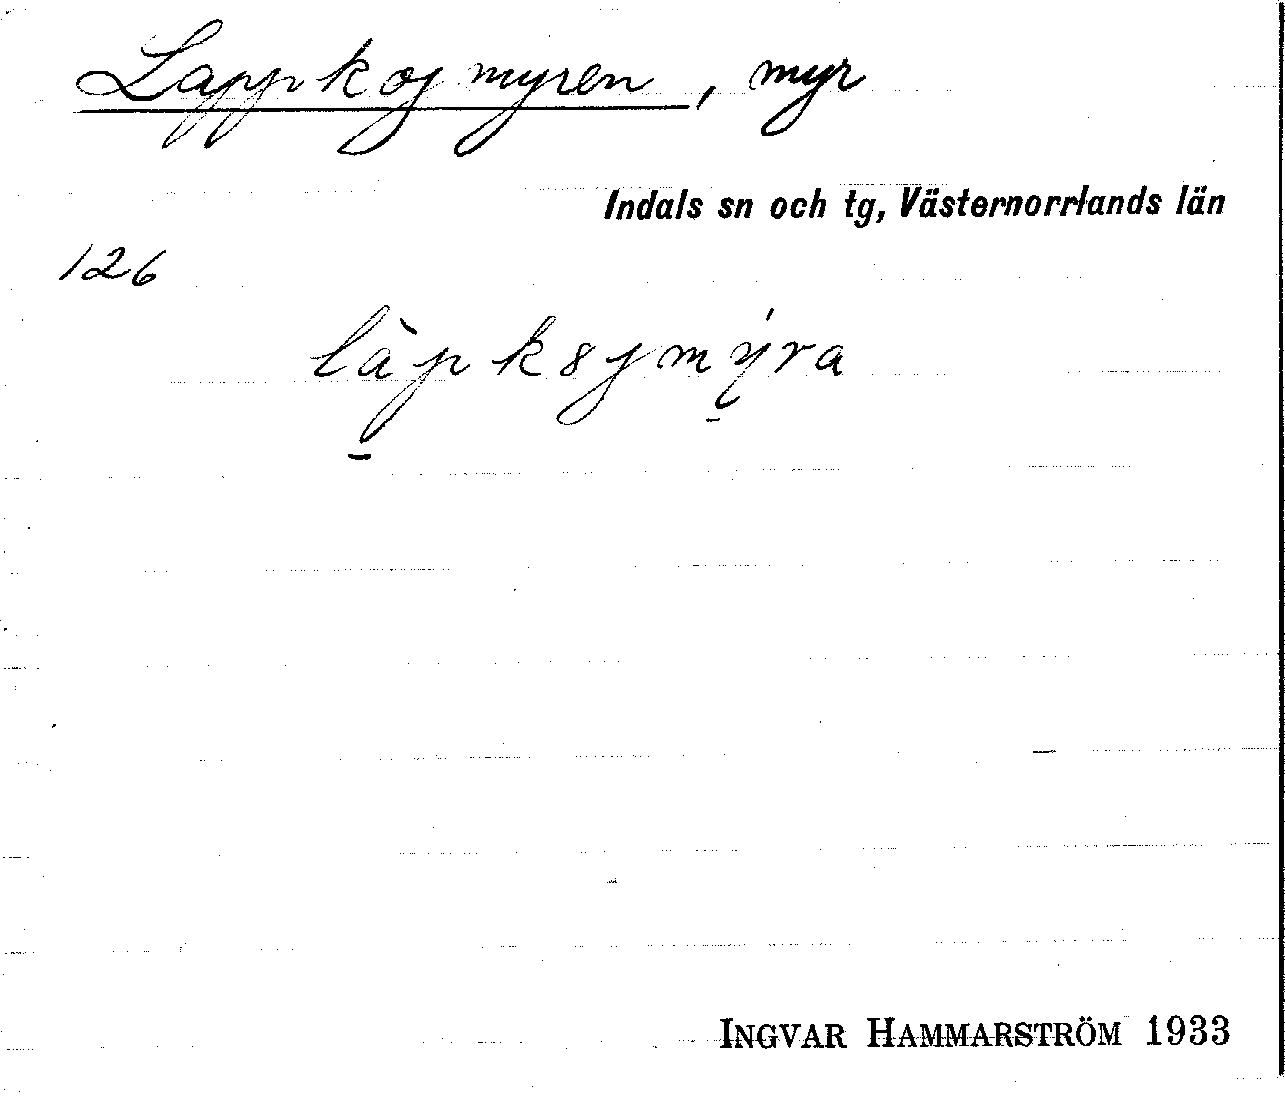 Lappkojmyren, myr
Indals sn och tg, Västernorrlands län
126
làpk8jmy̌́ra
INGVAR HAMMARSTRÖM 1933